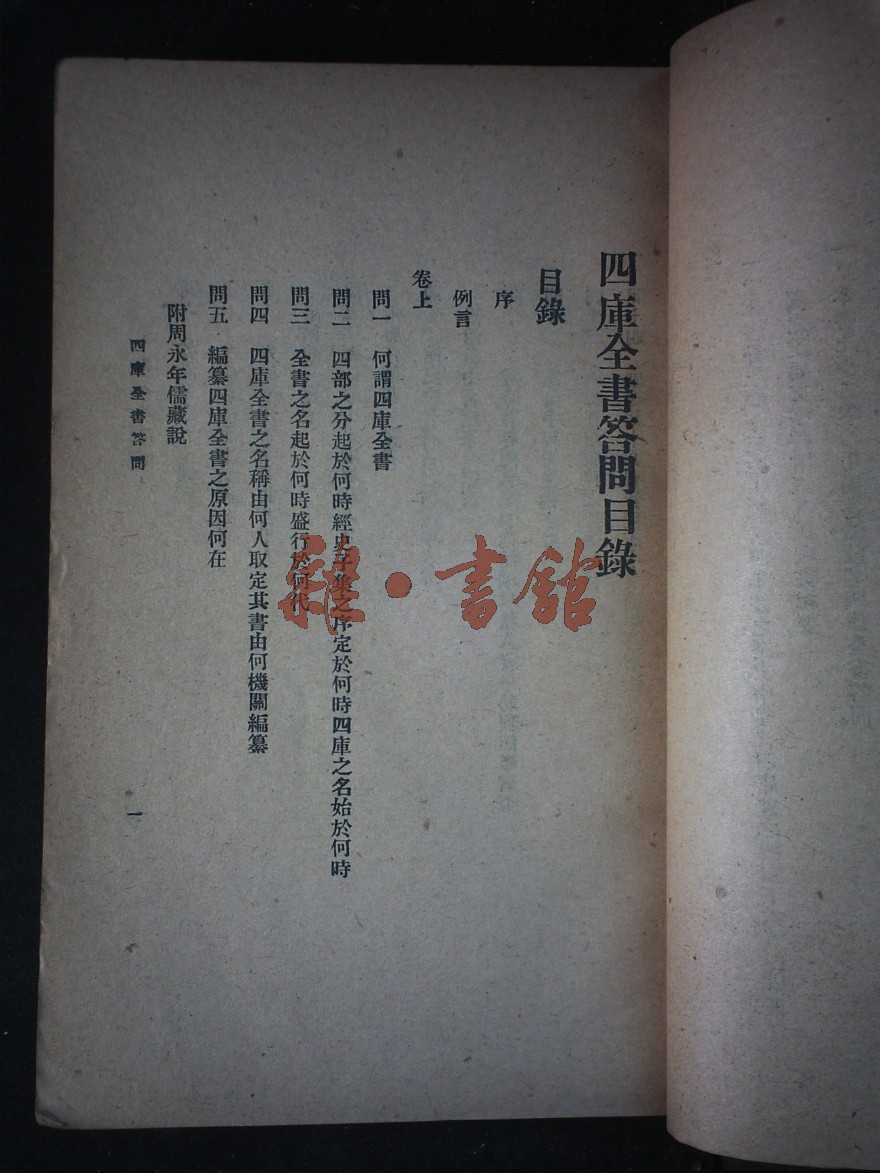 四庫全書答問目錄
目錄
序
例言
卷上
問一　何謂四庫全書
問二　四部之分起於何時經史子集之序定於何時四庫之名始於何時
問三　全書之名起於何時盛行於何代
問四　四庫全書之名稱由何人取定其書由何機關編纂
問五　編纂四庫全書之原因何在
附周永年儒藏說
四庫全書答問
一
雜·書館